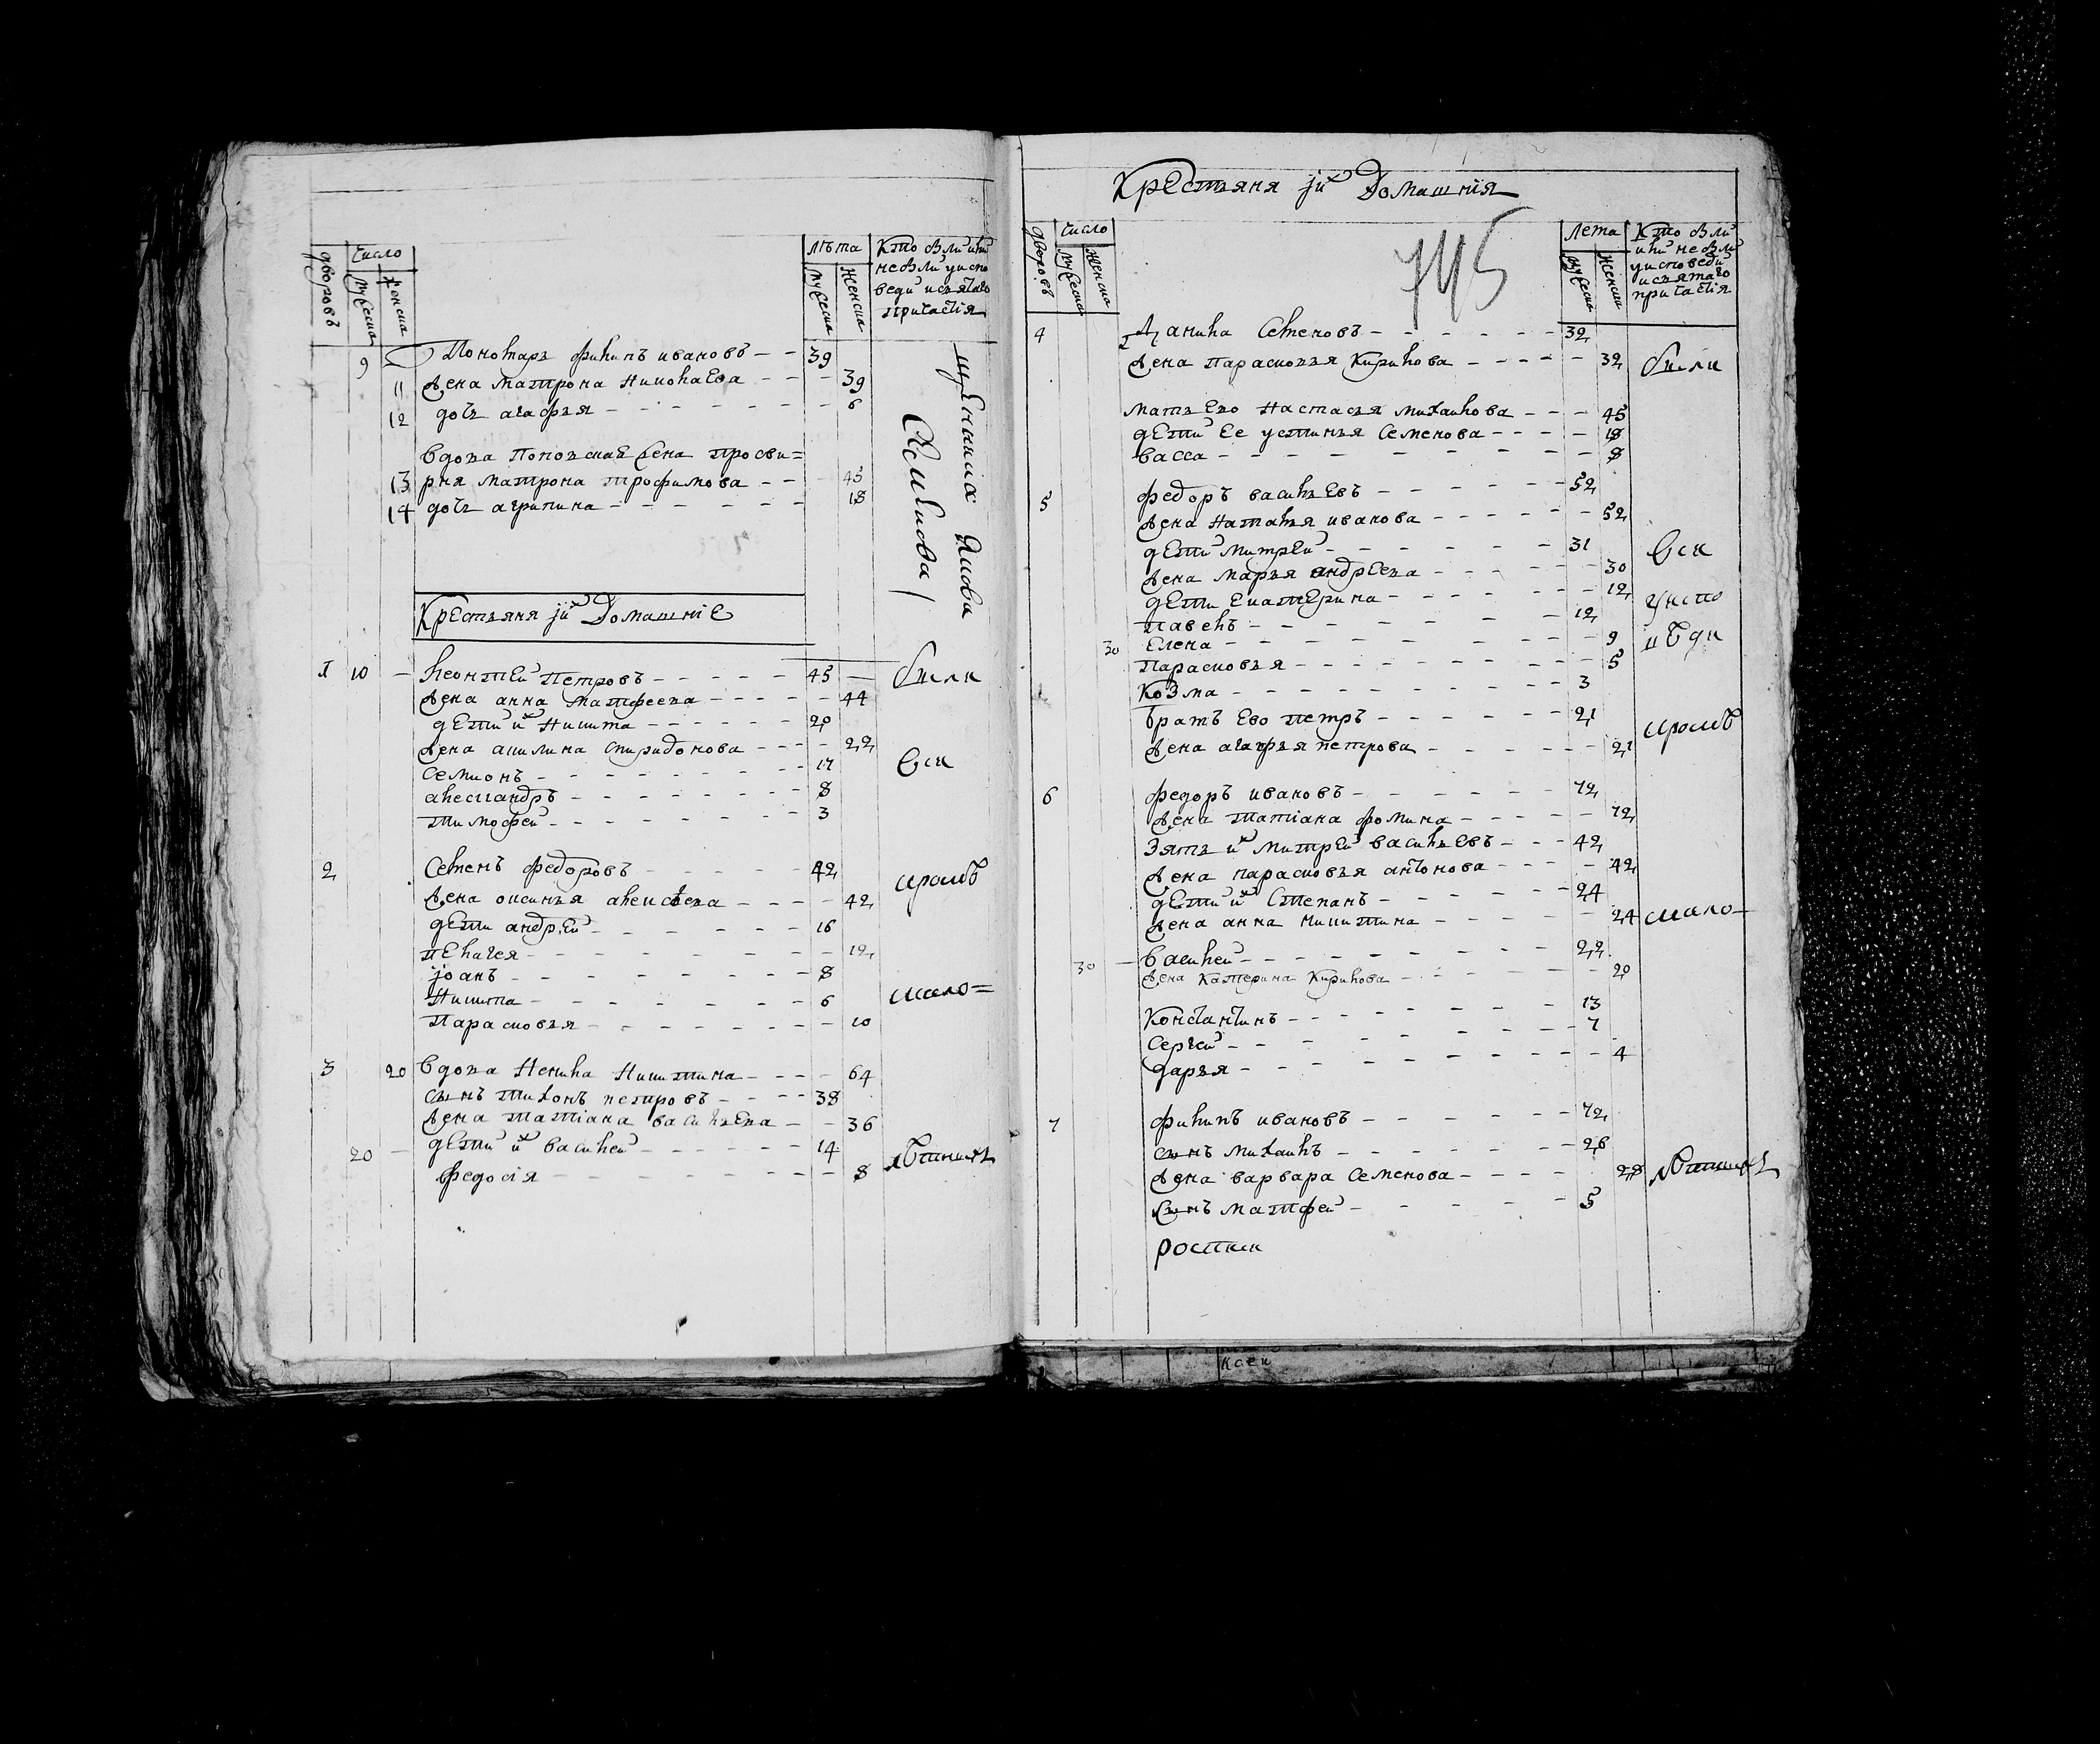 дворовъ
число
мужеска
женска
лѣта
мужеска
женска
Кто были или
небыли уиспо
веди исвятаго
причастія
9 Пономарь филипъ ивановъ 39
11 жена матрона николаева 39
12 дочь агафья 6
вдова поповская жена просви=
13 рня матрона трофимова 45
14 дочь агрипина 18
Крестьяня ӏи Домашніе
1 10 леонтей петровъ 45
жена анна матфеева 44
дети и никита 20
жена акилина спиридонова 22
семионъ 17
александръ 8
тимофей 3
2 Семенъ федоровъ 42
жена оксинья алексѣева 42
дети андрей 16
пелагея 12
ӏоанъ 8
Никита 6
Парасковья 10
3 20 вдова Ненила Никитина 64
сынъ тихонъ петровъ 38
жена татіана васильева 36
20 дети и василей 14
федосія 8
были
вси
кромѣ
мало=
лѣтныхъ
Якова
Крестьяня ӏи Домашнія
745
дворовъ
число
мужеска
женска
Лета
мужеска
женска
Кто были
или небыли
уисповеди
исвятаго
причастія
4 Данила Семеновъ 32
жена парасковья Кирилова 32
мать Ево Настасья михаилова 45
дети Ее устинья Семенова 18
васса 8
5 федоръ васильевъ 52
жена Наталья иванова 52
дети митрей 31
жена марья андреева 30
дети Екатерина 12
павелъ 12
30 Елена 9
парасковья 5
Козма 3
братъ Ево петръ 21
жена агафья петрова 21
6 федоръ ивановъ 72
жена татіана фомина 72
Зять и митрей васильевъ 42
жена парасковья антонова 42
дети и Степанъ 24
жена анна никитина 24
30 василей 22
жена Катерина Кирилова 20
Константинъ 13
Сергей 7
дарья 4
7 филипъ ивановъ 72
сынъ михаилъ 26
жена варвара Семенова 28
Сынъ матфей 5
роспись
были
вси
уиспо
вѣди
кромѣ
мало=
лѣтныхъ